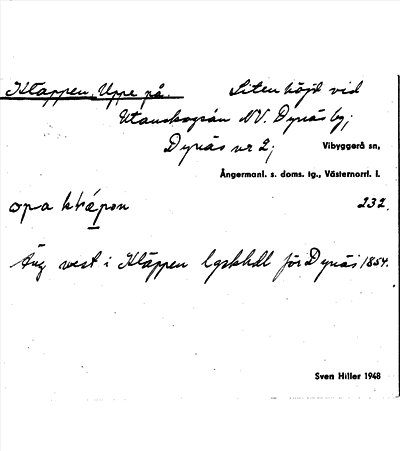 Kläppen, Uppe på. Liten höjd vid
Utanskogsån NV. Dynäs by,
Dynäs nr 2; Vibyggerå sn,
Ångermanl. s. doms. tg., Västernorrl. l.
232.
Äng vest i Kläppen lgskhdl för Dynäs 1854.
Sven Hiller 1948